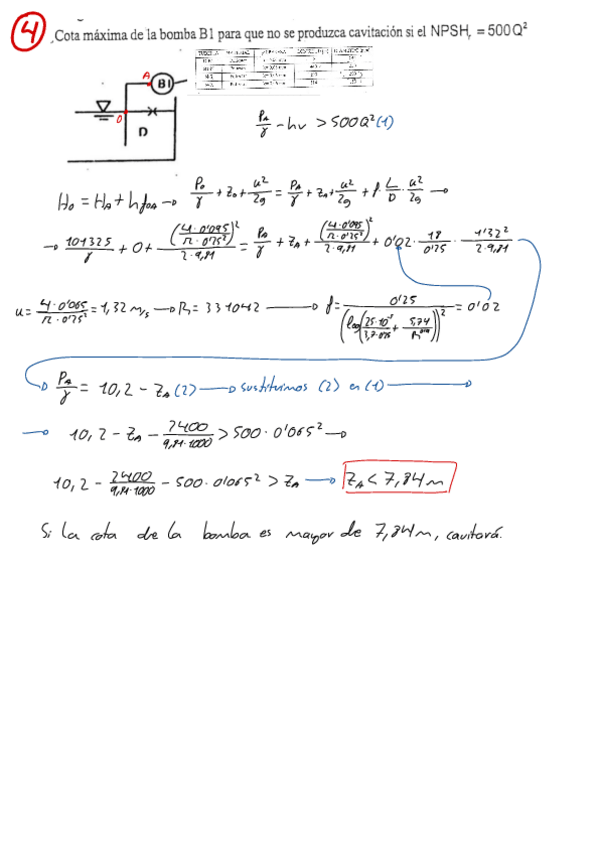 4
Cota máxima de la bomba B1 para que no se produzca cavitación si el NPSHr = 500Q²
A
B1
O
D
Pa/γ - hv > 500Q² (1)
Ho = HA + hfOA → Po/γ + zo + u²/2g = PA/γ + zA + u²/2g + f · L/D · u²/2g →
→ 101325/γ + 0 + (4·0'095/π·0'25²)²/2·9,81 = PA/γ + zA + (4·0'095/π·0'25²)²/2·9,81 + 0'02 · 18/0'25 · 1'32²/2·9,81
u = 4·0'065/π·0'25² = 1,32 m/s → R = 331042 → f = 0'25/(log(25·10⁻³/3,7·0'25 + 5,74/R⁰'⁹))² = 0'02
PA/γ = 10,2 - zA (2) → sustituimos (2) en (1) →
→ 10,2 - zA - 2400/9,81·1000 > 500·0'065² →
10,2 - 2400/9,81·1000 - 500·0'065² > zA → zA < 7,84 m
Si la cota de la bomba es mayor de 7,84 m, cavitará.